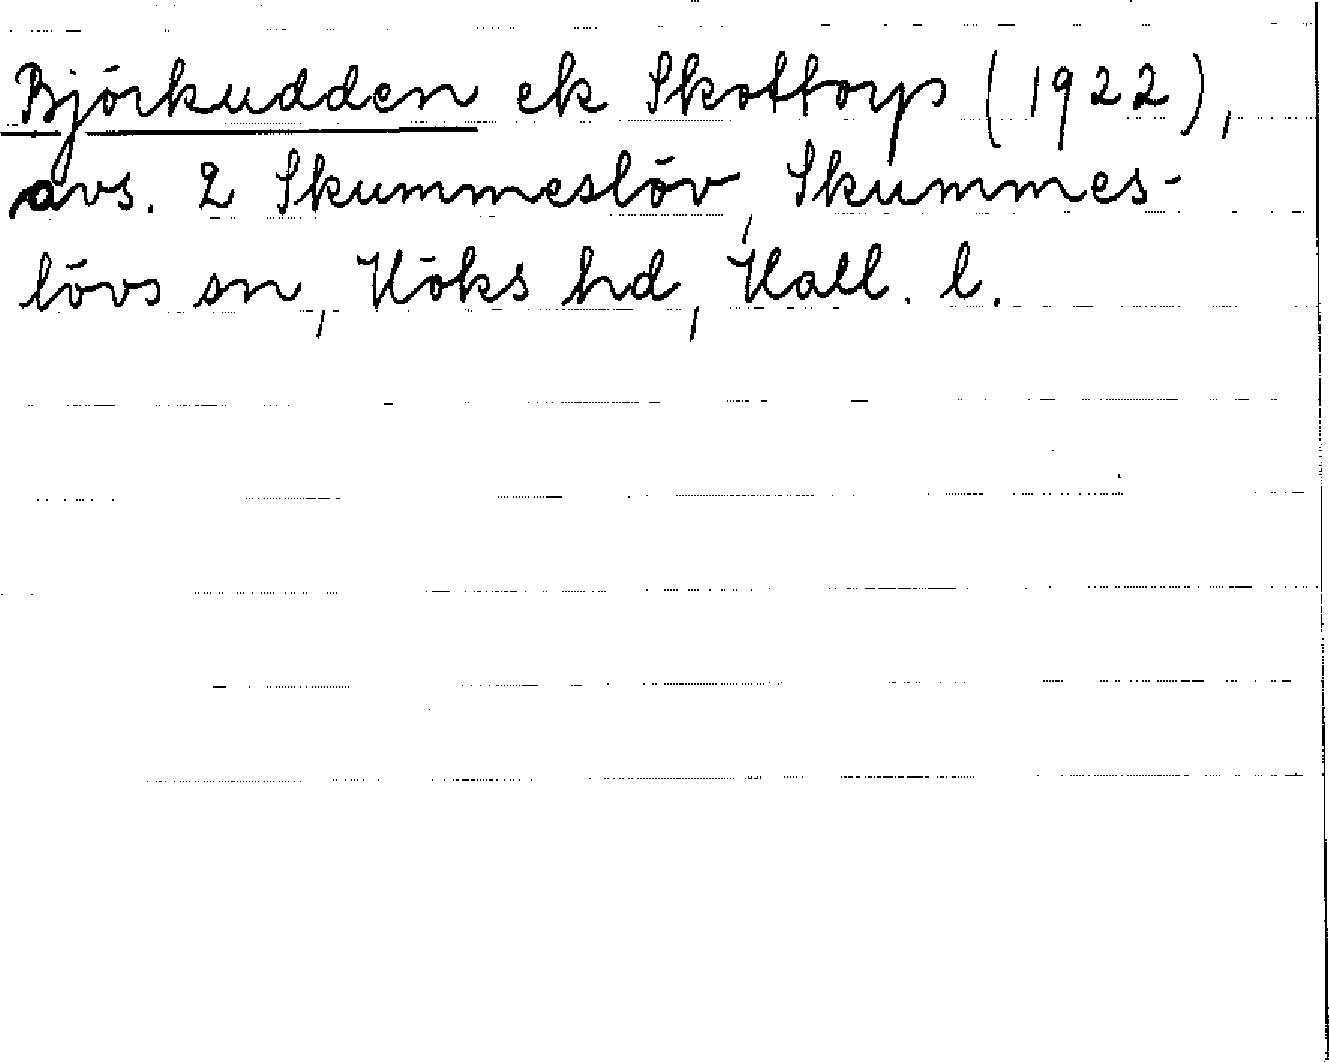 Björkudden ek Skottorp (1922),
avs. 2 Skummeslöv, Skummes-
lövs sn, Höks hd, Hall. l.